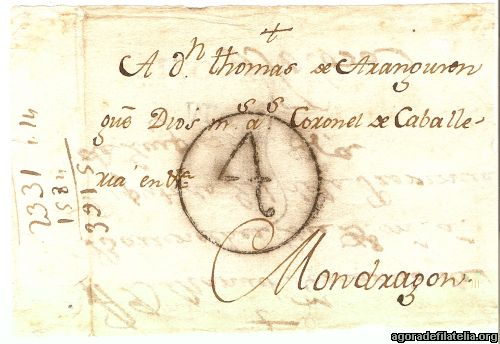 +
A dⁿ thomas de Aranguren
gue Dios m.ˢ a.ˢ Coronel de Caballe-
ria en
4
Mondragon.
2331 " 14
agoradefilatelia.org